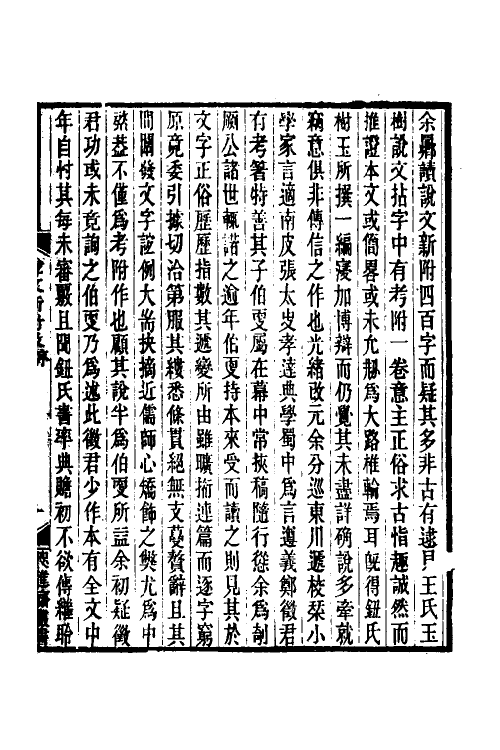 余曩讀說文新附四百字而疑其多非古有逮見王氏玉
樹說文拈字中有考附一卷意主正俗求古恉趣誠然而
推證本文或簡畧或未允赫爲大路椎輪焉耳旣得鈕氏
樹玉所撰一編凝加博辯而仍覺其未盡詳稱說多牽就
竊意俱非傳信之作也光緒改元余分巡東川遞校栞小
學家言適南皮張太史孝達典學蜀中爲言遵義鄭徵君
有考箸特善其子伯更屬在幕中常挾稿隨行慫余爲刱
劂公諸世輒諾之逾年伯更持本來受而讀之則見其於
文字正俗歷歷指數其遞變所由雖曠桁連篇而逐字窮
原竟委引據切洽第服其縷悉條貫絕無支蔓贅辭且其
間闡發文字誼例大耑抉摘近儒師心矯飾之獘尤爲中
綮葢不僅爲考附作也顧其說半爲伯更所益余初疑徵
君功或未竟詢之伯更乃爲述此徵君少作本有全文中
年自忖其每未審覈且聞鈕氏書率典贍初不欲傳繼聆